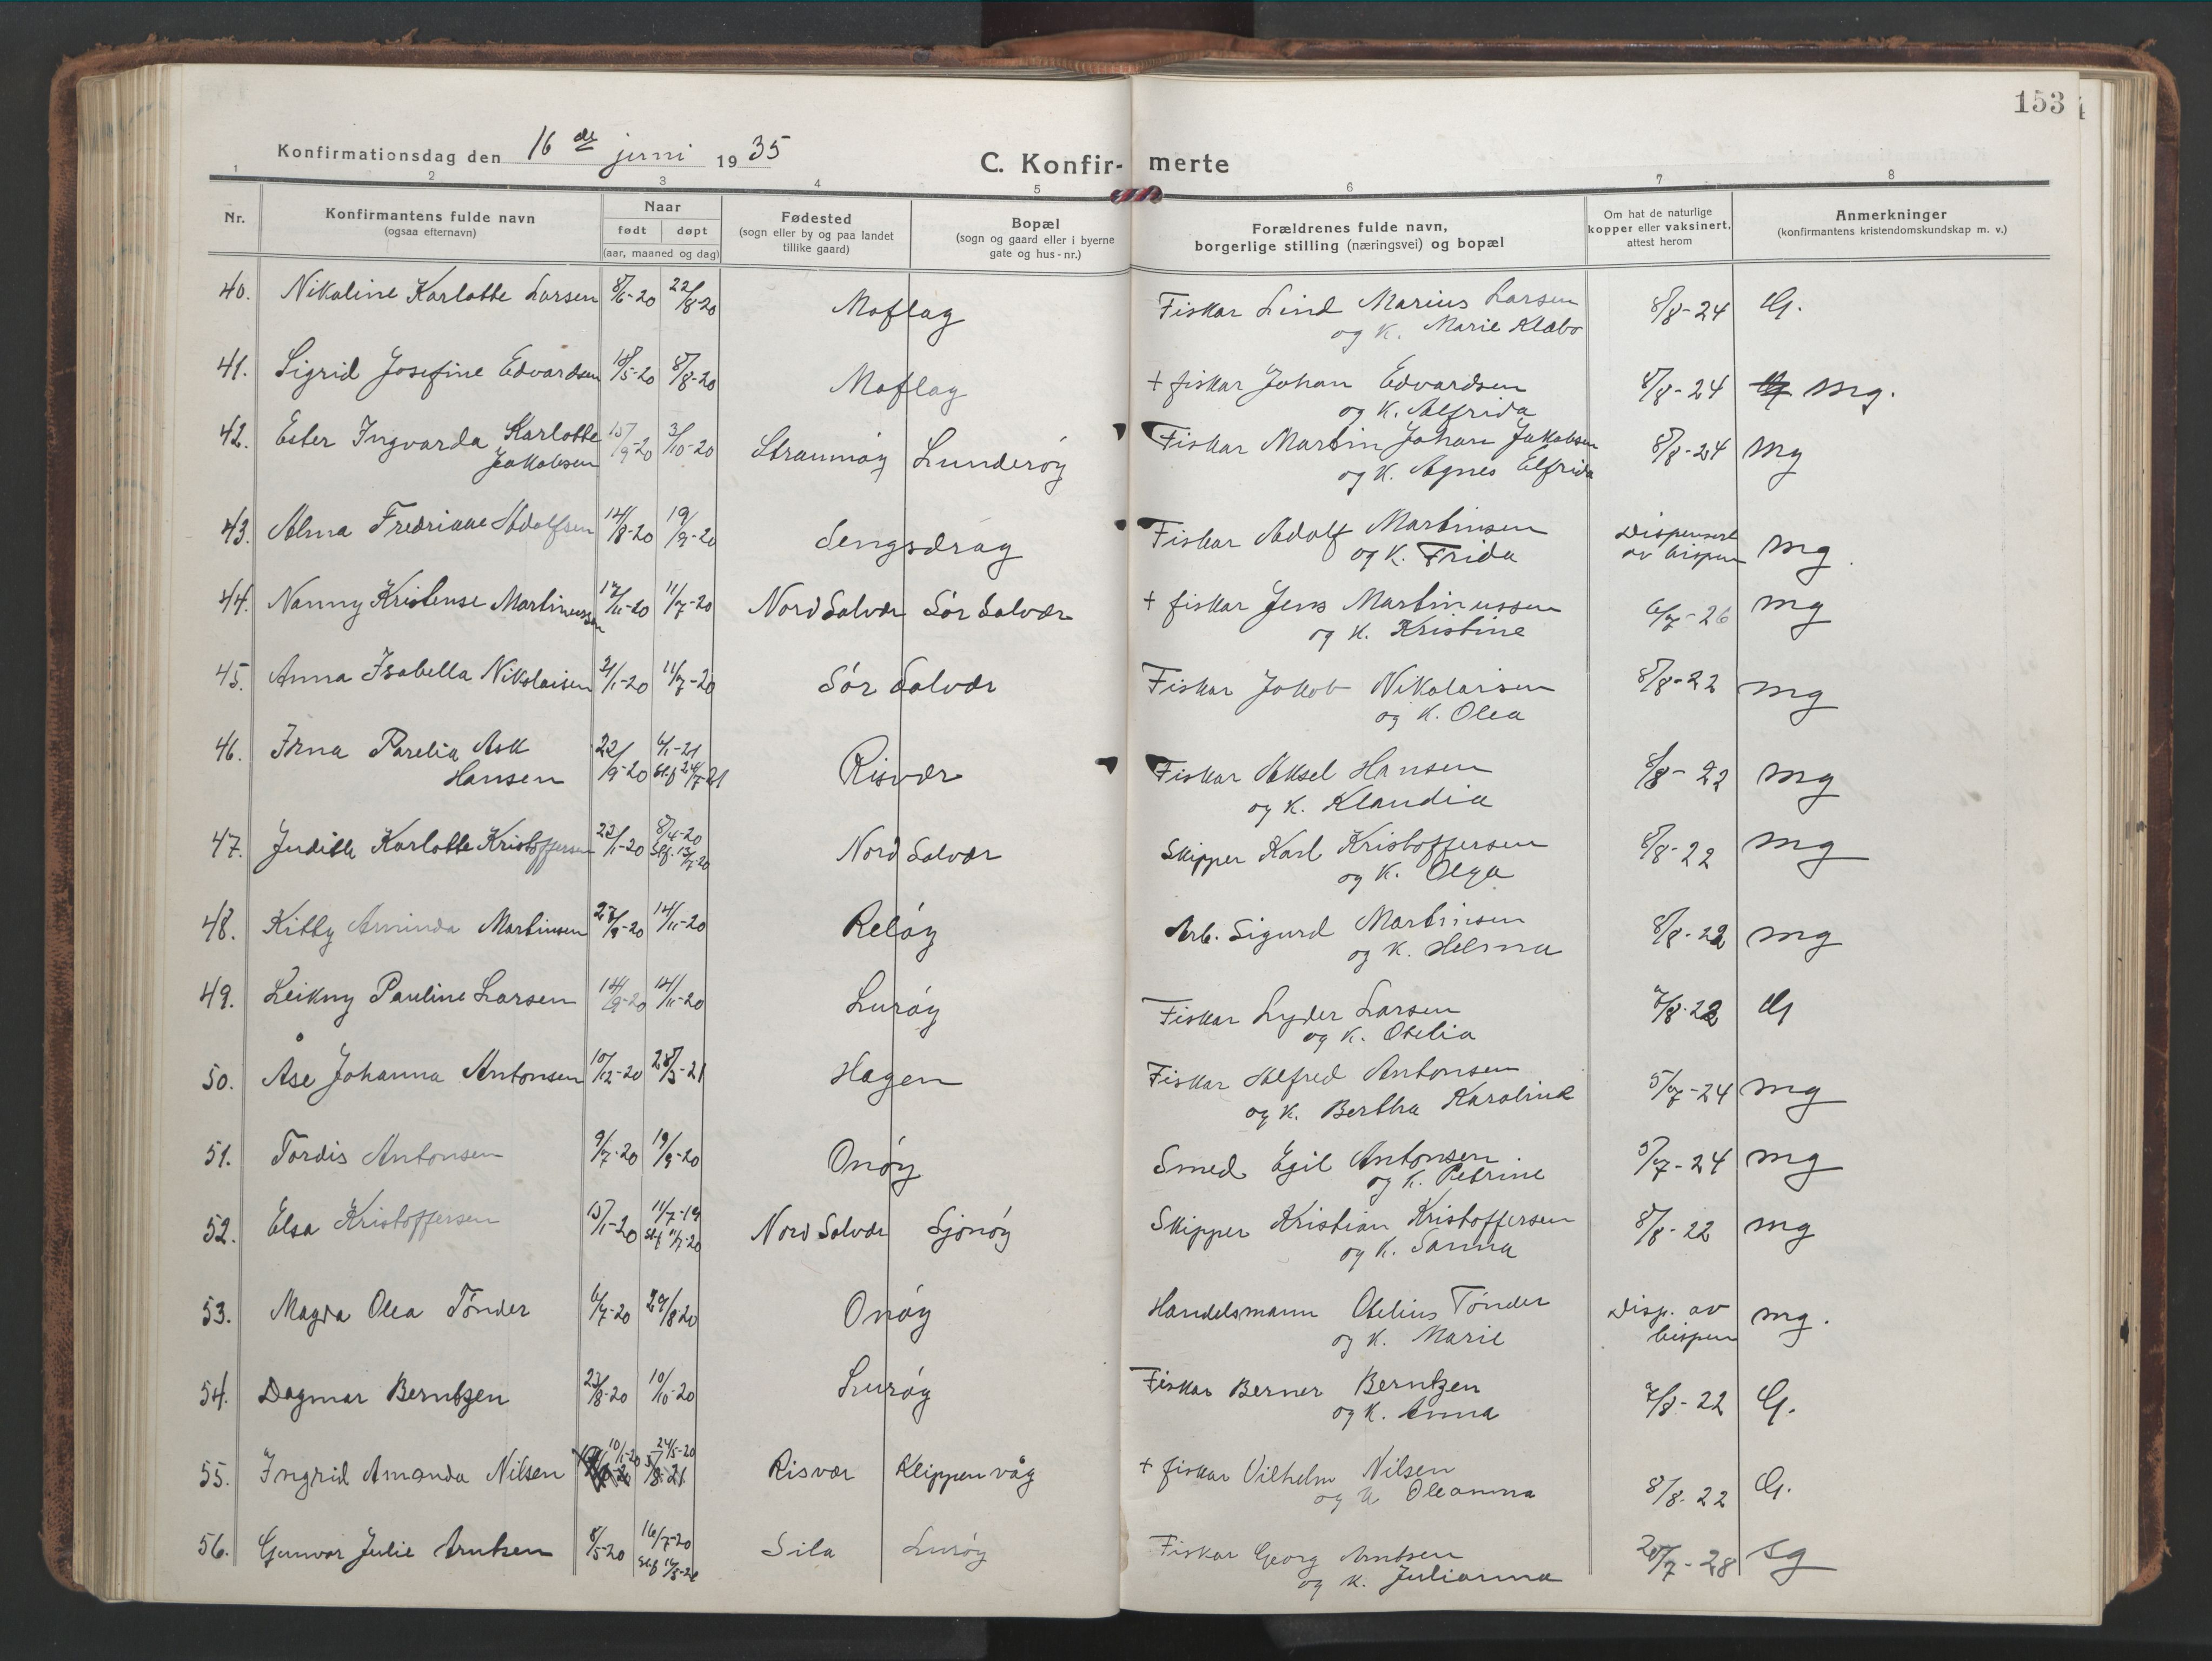 153
Konfirmationsdag den 16 de juni 1935
C. Konfir- merte
1 2 3 4 5 6 7 8
Nr.
Konfirmantens fulde navn
(ogsaa efternavn)
Naar
født døpt
(aar, maaned og dag)
Fødested
(sogn eller by og paa landet
tillike gaard)
Bopæl
(sogn og gaard eller i byerne
gate og hus-nr.)
Forældrenes fulde navn,
borgerlige stilling (næringsvei) og bopæl
Om hat de naturlige
kopper eller vaksinert,
attest herom
Anmerkninger
(konfirmantens kristendomskundskap m. v.)
40. Nikoline Karlotte Larsen 8/6-20 22/8-20 Moflag Fiskar Lind Marius Larsen 8/8-24 G.
og K. Marie Klæbo
41. Sigrid Josefine Edvardsen 18/5-20 8/8-20 Moflag + fiskar Johan Edvardsen 8/8-24 mg.
og K. Alfrida
42. Ester Ingvarda Karlotte 15/9-20 3/10-20 Straumøy Lunderøy Fiskar Martin Johan Jakobsen 8/8-24 mg
Jakobsen og K. Agnes Elfrida
43. Alma Fredrikke Adolfsen 14/8-20 19/9-20 Lengsdrag Fiskar Adolf Martinsen Dispensert mg
og K. Frida av bispen
44. Nanny Kristense Martinussen 11/7-20 Nord Solvær Sør Solvær + fiskar Jens Martinussen 6/7-26 mg
og K. Kristine
45. Anna Isabella Nikolaisen 21/1-20 11/7-20 Sør Solvær Fiskar Jakob Nikolaisen 8/8-22 mg
og K. Olea
46. Irna Parelia Ask 22/9-20 6/1-21 Risvær Fiskar Aksel Hansen 8/8-22 mg
Hansen St.f 24/7-21 og K. Klaudia
47. Judith Karlotte Kristoffersen 22/1-20 8/4-20 Nord Solvær Skipper Karl Kristoffersen 8/8-22 mg
St.f. 13/7-20 og K. Olga
48. Kitty Aminda Martinsen 27/9-20 14/11-20 Reløy Arb. Sigurd Martinsen 8/8-22 mg
og K. Helma
49. Leikny Pauline Larsen 14/9-20 14/11-20 Lurøy Fiskar Lyder Larsen 7/8-22 G
og K. Otelia
50. Åse Johanna Antonsen 10/12-20 28/3-21 Hagen Fiskar Alfred Antonsen 5/7-24 mg
og K. Bertha Karoline
51. Tordis Antonsen 9/7-20 19/9-20 Onøy Smed Egil Antonsen 5/7-24 mg
og K. Petrine
52. Elsa Kristoffersen 15/1-20 Nord Solvær Sjonøy Skipper Kristian Kristoffersen 8/8-22 mg
St.f 11/7-20 og K. Sanna
53. Magda Olea Tönder 6/7-20 29/8-20 Onøy Handelsmann Otelius Tönder Disp. av mg.
og K. Marie bispen
54. Dagmar Berntzen 23/8-20 10/10-20 Lurøy Fiskar Berner Berntzen 7/8-22 G.
og K. Anna
55. Ingrid Amanda Nilsen 10/1-20 24/5-20 Risvær Klippenvåg + fiskar Vilhelm Nilsen 8/8-22 G.
5/8-21 og K Oleanna
56. Gunvor Julie Arntsen 8/5-20 16/7-20 Sila Lurøy Fiskar Georg Arntsen 20/7-28 sg
St.f og K. Julianna